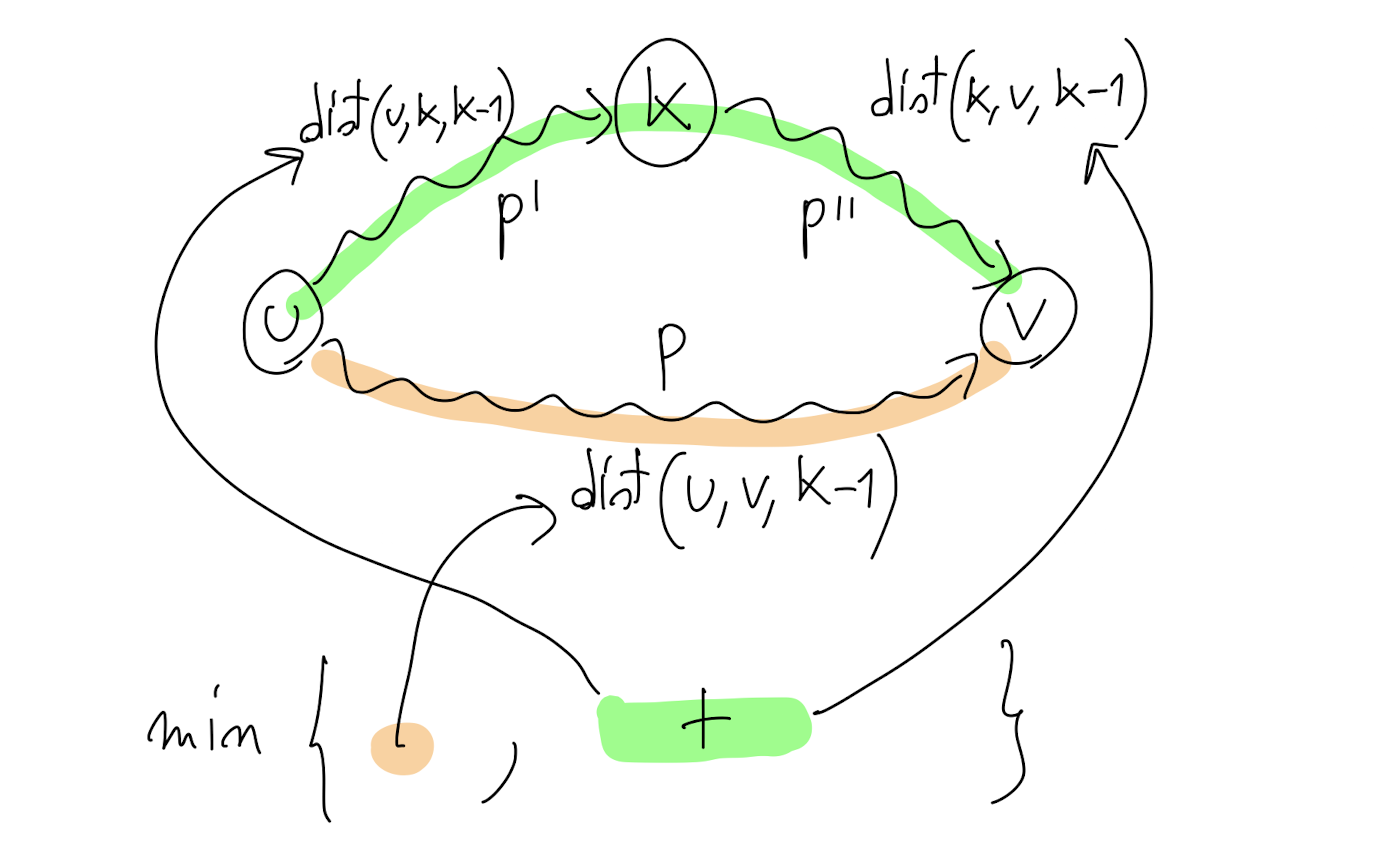 k
dist(u,k,k-1)
dist(k,v,k-1)
p'
p''
u
v
p
dist(u,v,k-1)
min { , + }